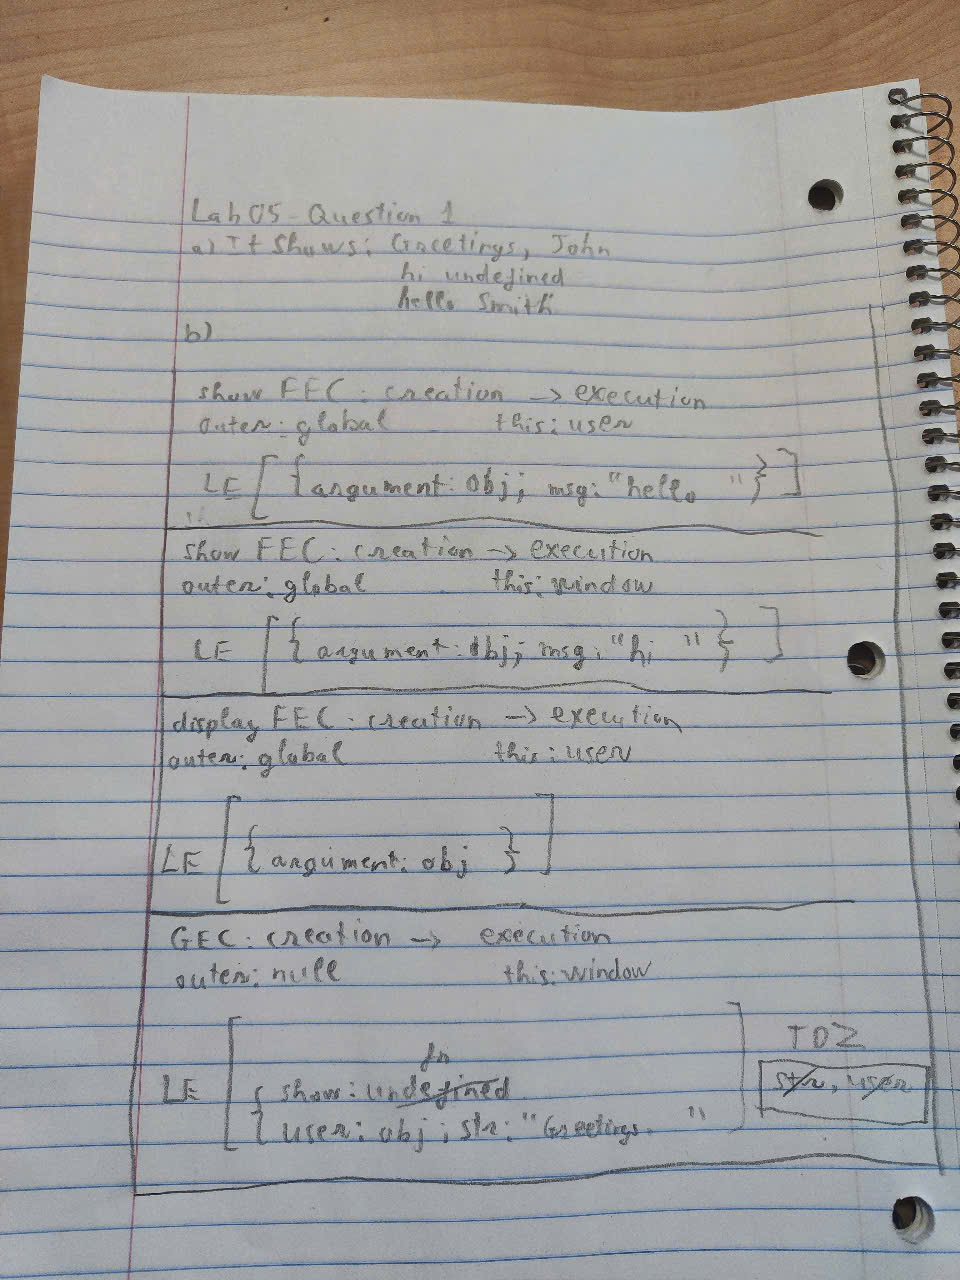 Lab 05 - Question 1
a) It shows: Greetings, John
hi undefined
hello Smith
b)
show FEC: creation → execution
outer: global this: user
LE [ { argument: obj; msg: "hello " } ]
show FEC: creation → execution
outer: global this: window
LE [ { argument: obj; msg: "hi " } ]
display FEC: creation → execution
outer: global this: user
LE [ { argument: obj } ]
GEC: creation → execution
outer: null this: window
TDZ
fn
LE [ { show: undefined
str, user
user: obj; str: "Greetings, "